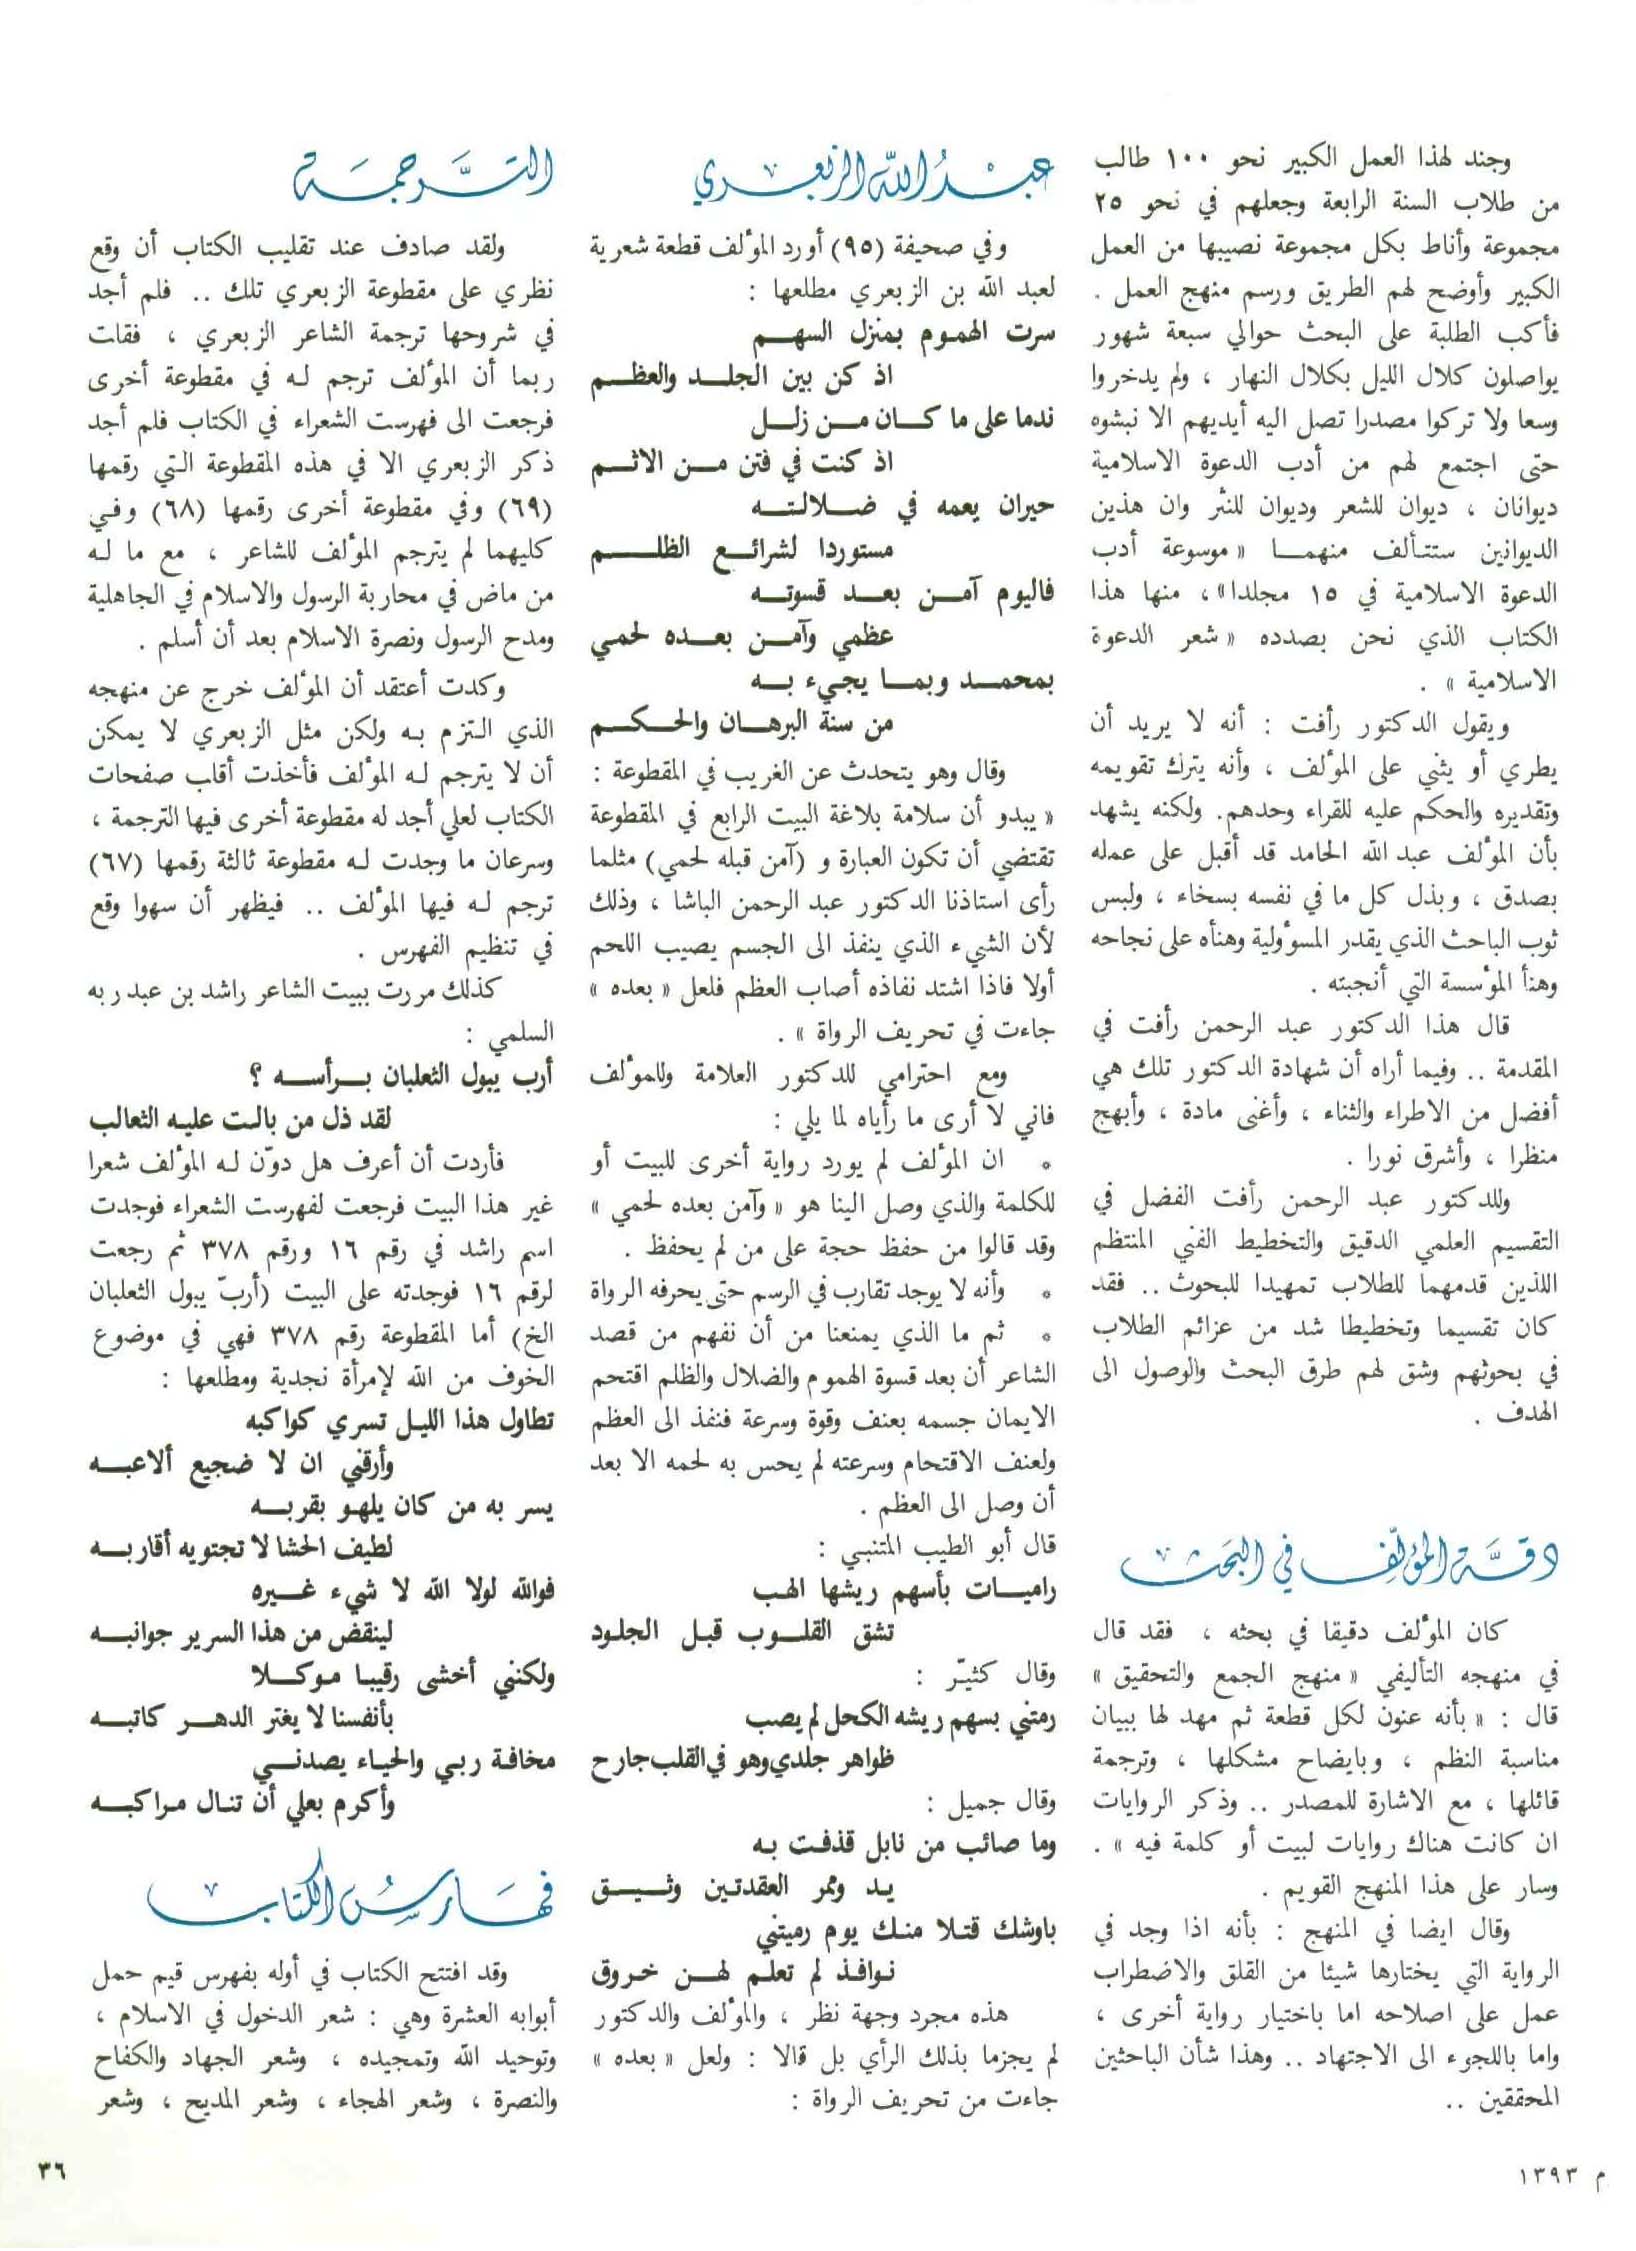 وجند لهذا العمل الكبير نحو ١٠٠ طالب
من طلاب السنة الرابعة وجعلهم في نحو ٢٥
مجموعة وأناط بكل مجموعة نصيبها من العمل
الكبير وأوضح لهم الطريق ورسم منهج العمل .
فأكب الطلبة على البحث حوالي سبعة شهور
يواصلون كلال الليل بكلال النهار ، ولم يدخروا
وسعا ولا تركوا مصدرا تصل اليه أيديهم الا نبشوه
حتى اجتمع لهم من أدب الدعوة الاسلامية
ديوانان ، ديوان للشعر وديوان للنثر وان هذين
الديوانين ستتألف منهما « موسوعة أدب
الدعوة الاسلامية في ١٥ مجلدا» ، منها هذا
الكتاب الذي نحن بصدده « شعر الدعوة
الاسلامية » .
ويقول الدكتور رأفت : أنه لا يريد أن
يطري أو يثني على المؤلف ، وأنه يترك تقويمه
وتقديره والحكم عليه للقراء وحدهم. ولكنه يشهد
بأن المؤلف عبد الله الحامد قد أقبل على عمله
بصدق ، وبذل كل ما في نفسه بسخاء ، ولبس
ثوب الباحث الذي يقدر المسؤولية وهنأه على نجاحه
وهنأ المؤسسة التي أنجبته .
قال هذا الدكتور عبد الرحمن رأفت في
المقدمة .. وفيما أراه أن شهادة الدكتور تلك هي
أفضل من الاطراء والثناء ، وأغنى مادة ، وأبهج
منظرا ، وأشرق نورا .
وللدكتور عبد الرحمن رأفت الفضل في
التقسيم العلمي الدقيق والتخطيط الفني المنتظم
اللذين قدمهما للطلاب تمهيدا للبحوث .. فقد
كان تقسيما وتخطيطا شد من عزائم الطلاب
في بحوثهم وشق لهم طرق البحث والوصول الى
الهدف .
دقَّة المؤلّف في البَحث
كان المؤلف دقيقا في بحثه ، فقد قال
في منهجه التأليفي « منهج الجمع والتحقيق »
قال : « بأنه عنون لكل قطعة ثم مهد لها ببيان
مناسبة النظم ، وبايضاح مشكلها ، وترجمة
قائلها ، مع الاشارة للمصدر .. وذكر الروايات
ان كانت هناك روايات لبيت أو كلمة فيه » .
وسار على هذا المنهج القويم .
وقال ايضا في المنهج : بأنه اذا وجد في
الرواية التي يختارها شيئا من القلق والاضطراب
عمل على اصلاحه اما باختيار رواية أخرى ،
واما باللجوء الى الاجتهاد .. وهذا شأن الباحثين
المحققين ..
عبْدُ اللّه الزبعري
وفي صحيفة (٩٥) أورد المؤلف قطعة شعرية
لعبد الله بن الزبعري مطلعها :
سرت الهموم بمنزل السهم
اذ كن بين الجلد والعظم
ندما على ما كان من زلل
اذ كنت في فتن من الاثم
حيران يعمه في ضلالته
مستوردا لشرائع الظلم
فاليوم آمن بعد قسوته
عظمي وآمن بعده لحمي
بمحمد وبما يجيء به
من سنة البرهان والحكم
وقال وهو يتحدث عن الغريب في المقطوعة :
« يبدو أن سلامة بلاغة البيت الرابع في المقطوعة
تقتضي أن تكون العبارة و (آمن قبله لحمي) مثلما
رأى استاذنا الدكتور عبد الرحمن الباشا ، وذلك
لأن الشيء الذي ينفذ الى الجسم يصيب اللحم
أولا فاذا اشتد نفاذه أصاب العظم فلعل « بعده »
جاءت في تحريف الرواة » .
ومع احترامي للدكتور العلامة وللمؤلف
فاني لا أرى ما رأياه لما يلي :
• ان المؤلف لم يورد رواية أخرى للبيت أو
للكلمة والذي وصل الينا هو « وآمن بعده لحمي »
وقد قالوا من حفظ حجة على من لم يحفظ .
• وأنه لا يوجد تقارب في الرسم حتى يحرفه الرواة
• ثم ما الذي يمنعنا من أن نفهم من قصد
الشاعر أن بعد قسوة الهموم والضلال والظلم اقتحم
الايمان جسمه بعنف وقوة وسرعة فنفذ الى العظم
ولعنف الاقتحام وسرعته لم يحس به لحمه الا بعد
أن وصل الى العظم .
قال أبو الطيب المتنبي :
راميات بأسهم ريشها الهب
تشق القلوب قبل الجلود
وقال كثيّر :
رمتني بسهم ريشه الكحل لم يصب
ظواهر جلدي وهو في القلب جارح
وقال جميل :
وما صائب من نابل قذفت به
يد وممر العقدتين وثيق
باوشك قتلا منك يوم رميتني
نوافذ لم تعلم لهن خروق
هذه مجرد وجهة نظر ، والمؤلف والدكتور
لم يجزما بذلك الرأي بل قالا : ولعل « بعده »
جاءت من تحريف الرواة :
التَّرجمَة
ولقد صادف عند تقليب الكتاب أن وقع
نظري على مقطوعة الزبعري تلك .. فلم أجد
في شروحها ترجمة الشاعر الزبعري ، فقلت
ربما أن المؤلف ترجم له في مقطوعة أخرى
فرجعت الى فهرست الشعراء في الكتاب فلم أجد
ذكر الزبعري الا في هذه المقطوعة التي رقمها
(٦٩) وفي مقطوعة أخرى رقمها (٦٨) وفي
كليهما لم يترجم المؤلف للشاعر ، مع ما له
من ماض في محاربة الرسول والاسلام في الجاهلية
ومدح الرسول ونصرة الاسلام بعد أن أسلم .
وكدت أعتقد أن المؤلف خرج عن منهجه
الذي التزم به ولكن مثل الزبعري لا يمكن
أن لا يترجم له المؤلف فأخذت أقلب صفحات
الكتاب لعلي أجد له مقطوعة أخرى فيها الترجمة ،
وسرعان ما وجدت له مقطوعة ثالثة رقمها (٦٧)
ترجم له فيها المؤلف .. فيظهر أن سهوا وقع
في تنظيم الفهرس .
كذلك مررت ببيت الشاعر راشد بن عبد ربه
السلمي :
أرب يبول الثعلبان برأسه ؟
لقد ذل من بالت عليه الثعالب
فأردت أن أعرف هل دوّن له المؤلف شعرا
غير هذا البيت فرجعت لفهرست الشعراء فوجدت
اسم راشد في رقم ١٦ ورقم ٣٧٨ ثم رجعت
لرقم ١٦ فوجدته على البيت (أربّ يبول الثعلبان
الخ) أما المقطوعة رقم ٣٧٨ فهي في موضوع
الخوف من الله لإمرأة نجدية ومطلعها :
تطاول هذا الليل تسري كواكبه
وأرقني ان لا ضجيع ألاعبه
يسر به من كان يلهو بقربه
لطيف الحشا لا تجتويه أقاربه
فوالله لولا الله لا شيء غيره
لينقض من هذا السرير جوانبه
ولكنني أخشى رقيبا موكلا
بأنفسنا لا يغتر الدهر كاتبه
مخافة ربي والحياء يصدني
وأكرم بعلي أن تنال مراكبه
فهَارسُ الكتاب
وقد افتتح الكتاب في أوله بفهرس قيم حمل
أبوابه العشرة وهي : شعر الدخول في الاسلام ،
وتوحيد الله وتمجيده ، وشعر الجهاد والكفاح
والنصرة ، وشعر الهجاء ، وشعر المديح ، وشعر
م ١٣٩٣
٣٦